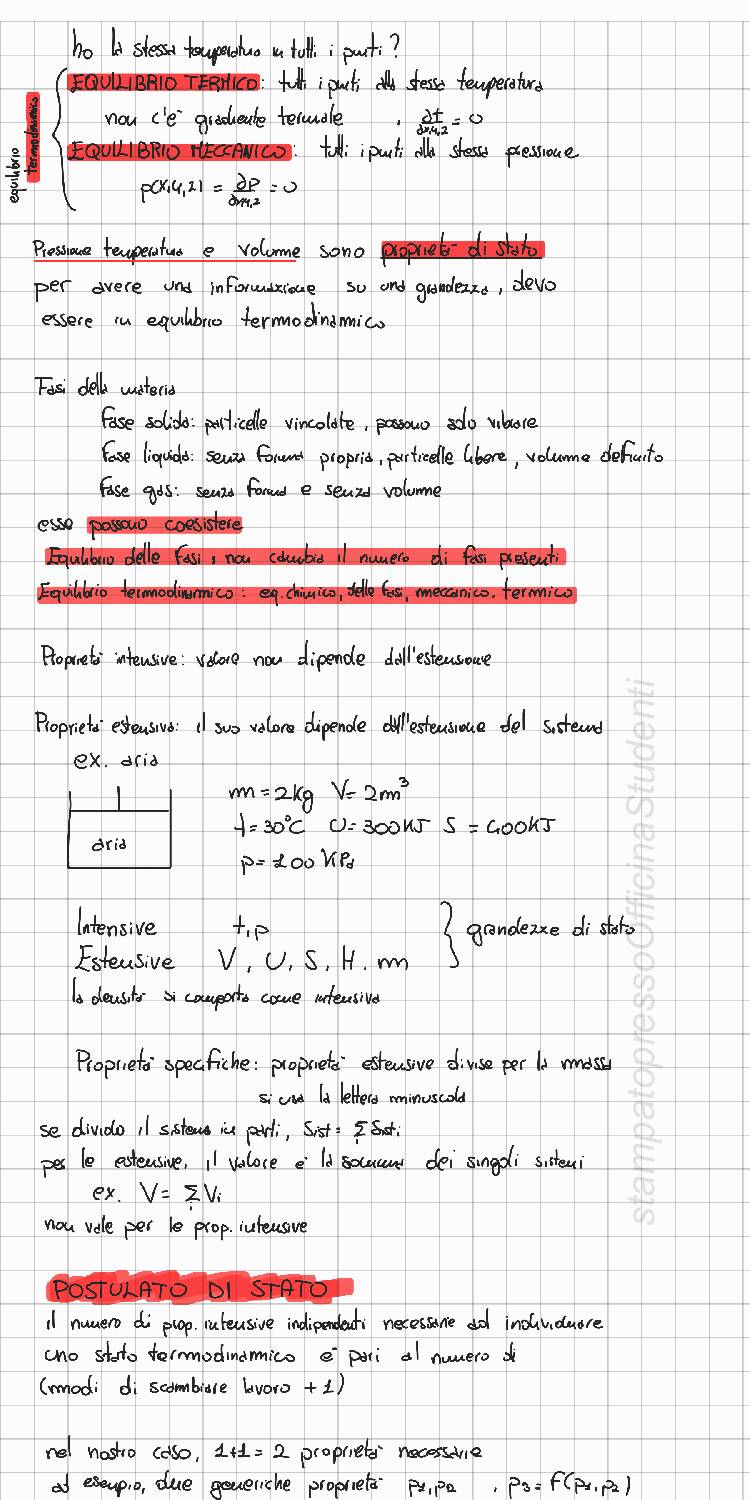 ho la stessa temperatura in tutti i punti?
EQUILIBRIO TERMICO: tutti i punti alla stessa temperatura
non c'è gradiente termale , ∂t/∂x,y,z = 0
EQUILIBRIO MECCANICO: tutti i punti alla stessa pressione
p(x,y,z) = ∂p/∂x,y,z = 0
equilibrio termodinamico
Pressione temperatura e volume sono proprietà di stato
per avere una informazione su una grandezza, devo
essere in equilibrio termodinamico
Fasi della materia
Fase solida: particelle vincolate, possono solo vibrare
Fase liquida: senza forma propria, particelle libere, volume definito
Fase gas: senza forma e senza volume
esse possono coesistere
Equilibrio delle fasi, non cambia il numero di fasi presenti
Equilibrio termodinamico: eq. chimico, delle fasi, meccanico, termico
Proprietà intensive: valore non dipende dall'estensione
Proprietà estensiva: il suo valore dipende dall'estensione del sistema
ex. aria
aria
m = 2kg V= 2m³
t= 30°C U= 300KJ S = 400KJ
p= 100 KPa
Intensive t,p
Estensive V, U, S, H, m
} grandezze di stato
la densità si comporta come intensiva
Proprietà specifiche: proprietà estensive divise per la massa
si usa la lettera minuscola
se divido il sistema in parti, Sist= Σ Sisti
per le estensive, il valore è la somma dei singoli sistemi
ex. V= Σ Vi
non vale per le prop. intensive
POSTULATO DI STATO
il numero di prop. intensive indipendenti necessarie ad individuare
uno stato termodinamico è pari al numero di
(modi di scambiare lavoro +1)
nel nostro caso, 1+1= 2 proprietà necessarie
ad esempio, due generiche proprietà p1,p2 , p3= f(p1,p2)
stampatopressoOfficinaStudenti